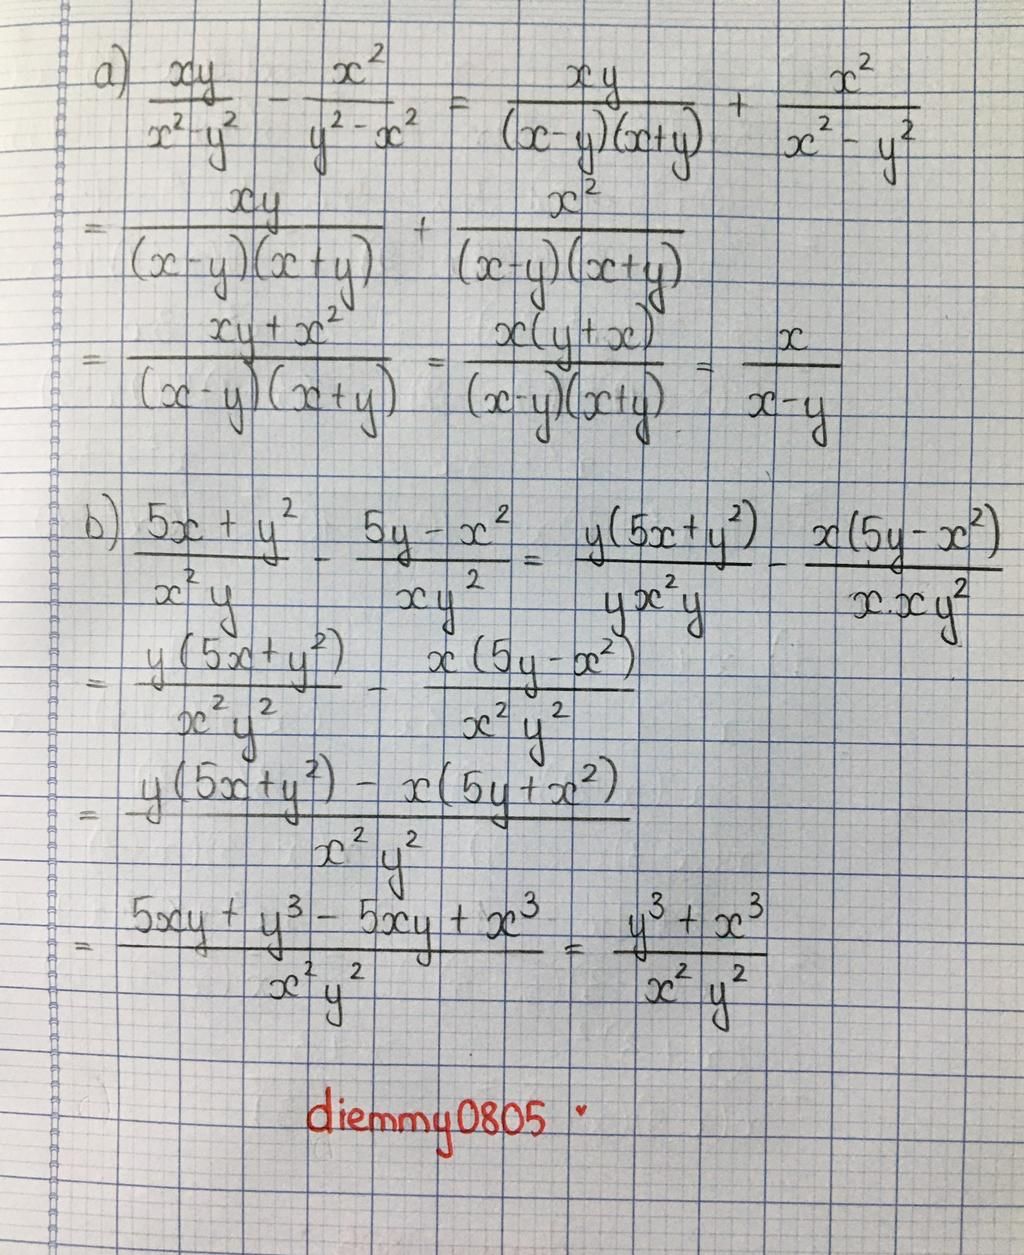 a) xy/(x² - y²) - x²/(y² - x²) = xy/((x-y)(x+y)) + x²/(x² - y²)
= xy/((x-y)(x+y)) + x²/((x-y)(x+y))
= (xy + x²)/((x-y)(x+y)) = x(y+x)/((x-y)(x+y)) = x/(x-y)
b) (5x + y²)/(x²y) - (5y - x²)/(xy²) = y(5x+y²)/(yx²y) - x(5y - x²)/(x.xy²)
= y(5x+y²)/(x²y²) - x(5y-x²)/(x²y²)
= (y(5x+y²) - x(5y+x²))/(x²y²)
= (5xy + y³ - 5xy + x³)/(x²y²) = (y³ + x³)/(x²y²)
diemmy0805